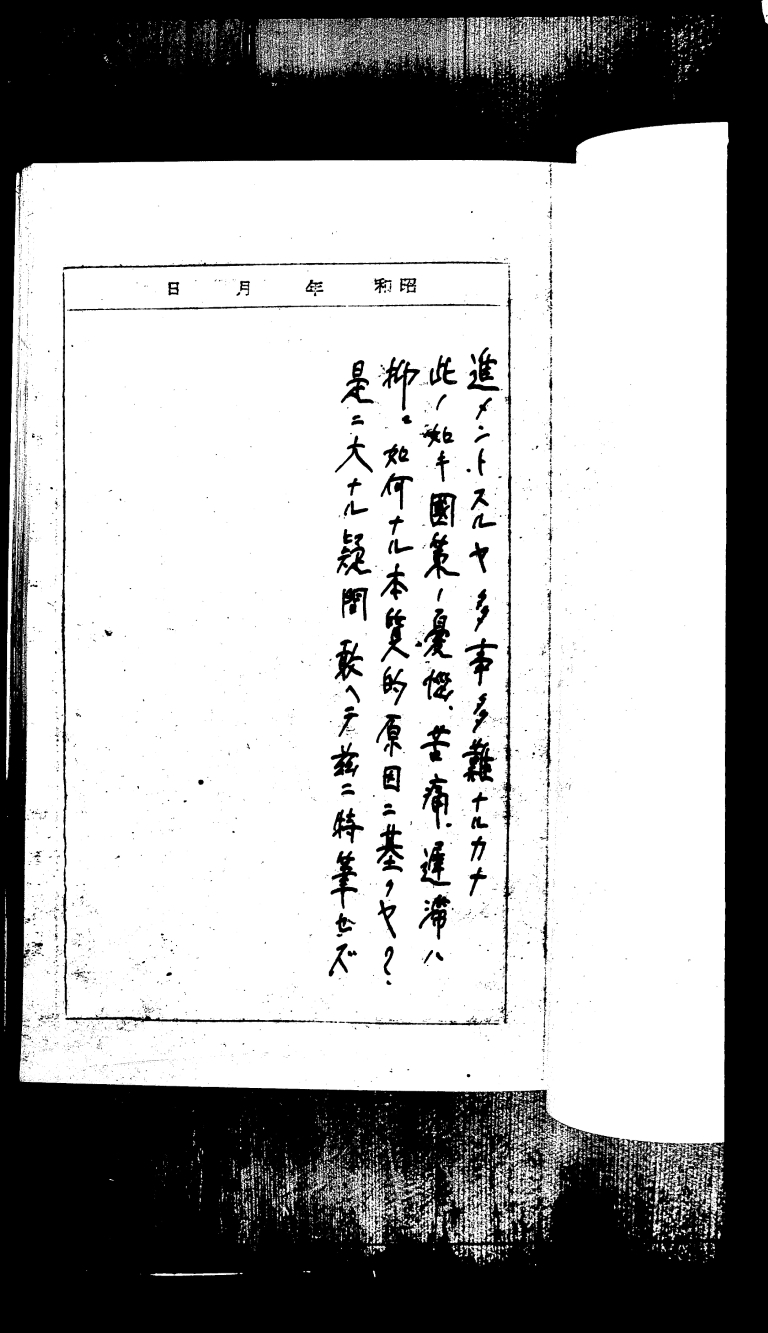 昭和　年　月　日
進メントスルヤ多事多難ナルカナ
此ノ如キ國策ノ憂慨、苦痛、遅滞ハ
抑々如何ナル本質的原因ニ基クヤ？
是ニ大ナル疑問敢ヘテ茲ニ特筆セズ